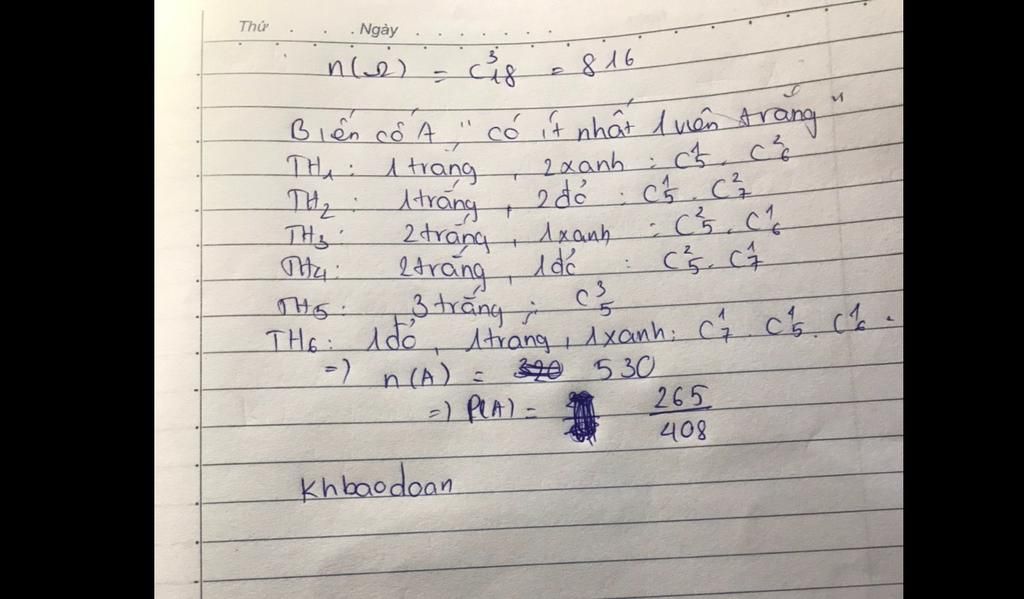 Thứ . . . Ngày . . . . . . .
n(Ω) = C³₁₈ = 816
Biến cố A " có ít nhất 1 viên trắng "
TH₁ : 1 trắng , 2 xanh : C¹₅ . C²₆
TH₂ : 1 trắng , 2 đỏ : C¹₅ . C²₇
TH₃ : 2 trắng , 1 xanh : C²₅ . C¹₆
TH₄ : 2 trắng , 1 đỏ : C²₅ . C¹₇
TH₅ : 3 trắng : C³₅
TH₆ : 1 đỏ , 1 trắng , 1 xanh : C¹₇ . C¹₅ . C¹₆ .
=) n(A) = 530
=) P(A) = 265/408
Khbaodoan